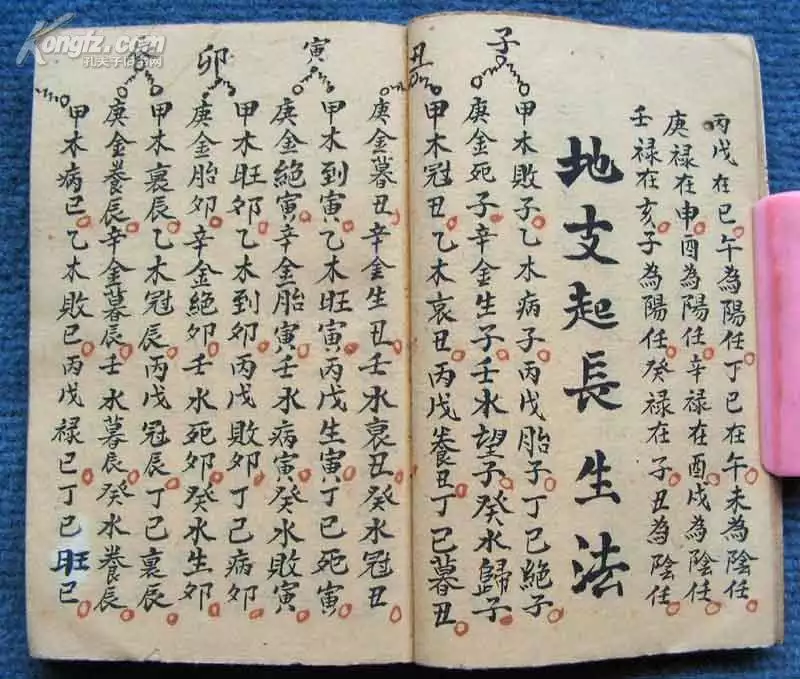 丙戊在巳午為陽任丁巳在午未為陰任
庚禄在申酉為陽任辛禄在酉戌為陰任
壬禄在亥子為陽任癸禄在子丑為陰任
地支起長生法
子
甲木敗子乙木病子丙戊胎子丁巳絕子
庚金死子辛金生子壬水望子癸水歸子
丑
甲木冠丑乙木哀丑丙戊養丑丁巳暮丑
庚金暮丑辛金生丑壬水裏丑癸水冠丑
寅
甲木到寅乙木旺寅丙戊生寅丁巳死寅
庚金絕寅辛金胎寅壬水病寅癸水敗寅
卯
甲木旺卯乙木到卯丙戊敗卯丁巳病卯
庚金胎卯辛金絕卯壬水死卯癸水生卯
辰
甲木裏辰乙木冠辰丙戊冠辰丁巳裏辰
庚金養辰辛金暮辰壬水暮辰癸水養辰
甲木病巳乙木敗巳丙戊禄巳丁巳旺巳
Kongfz.com
孔夫子旧书网